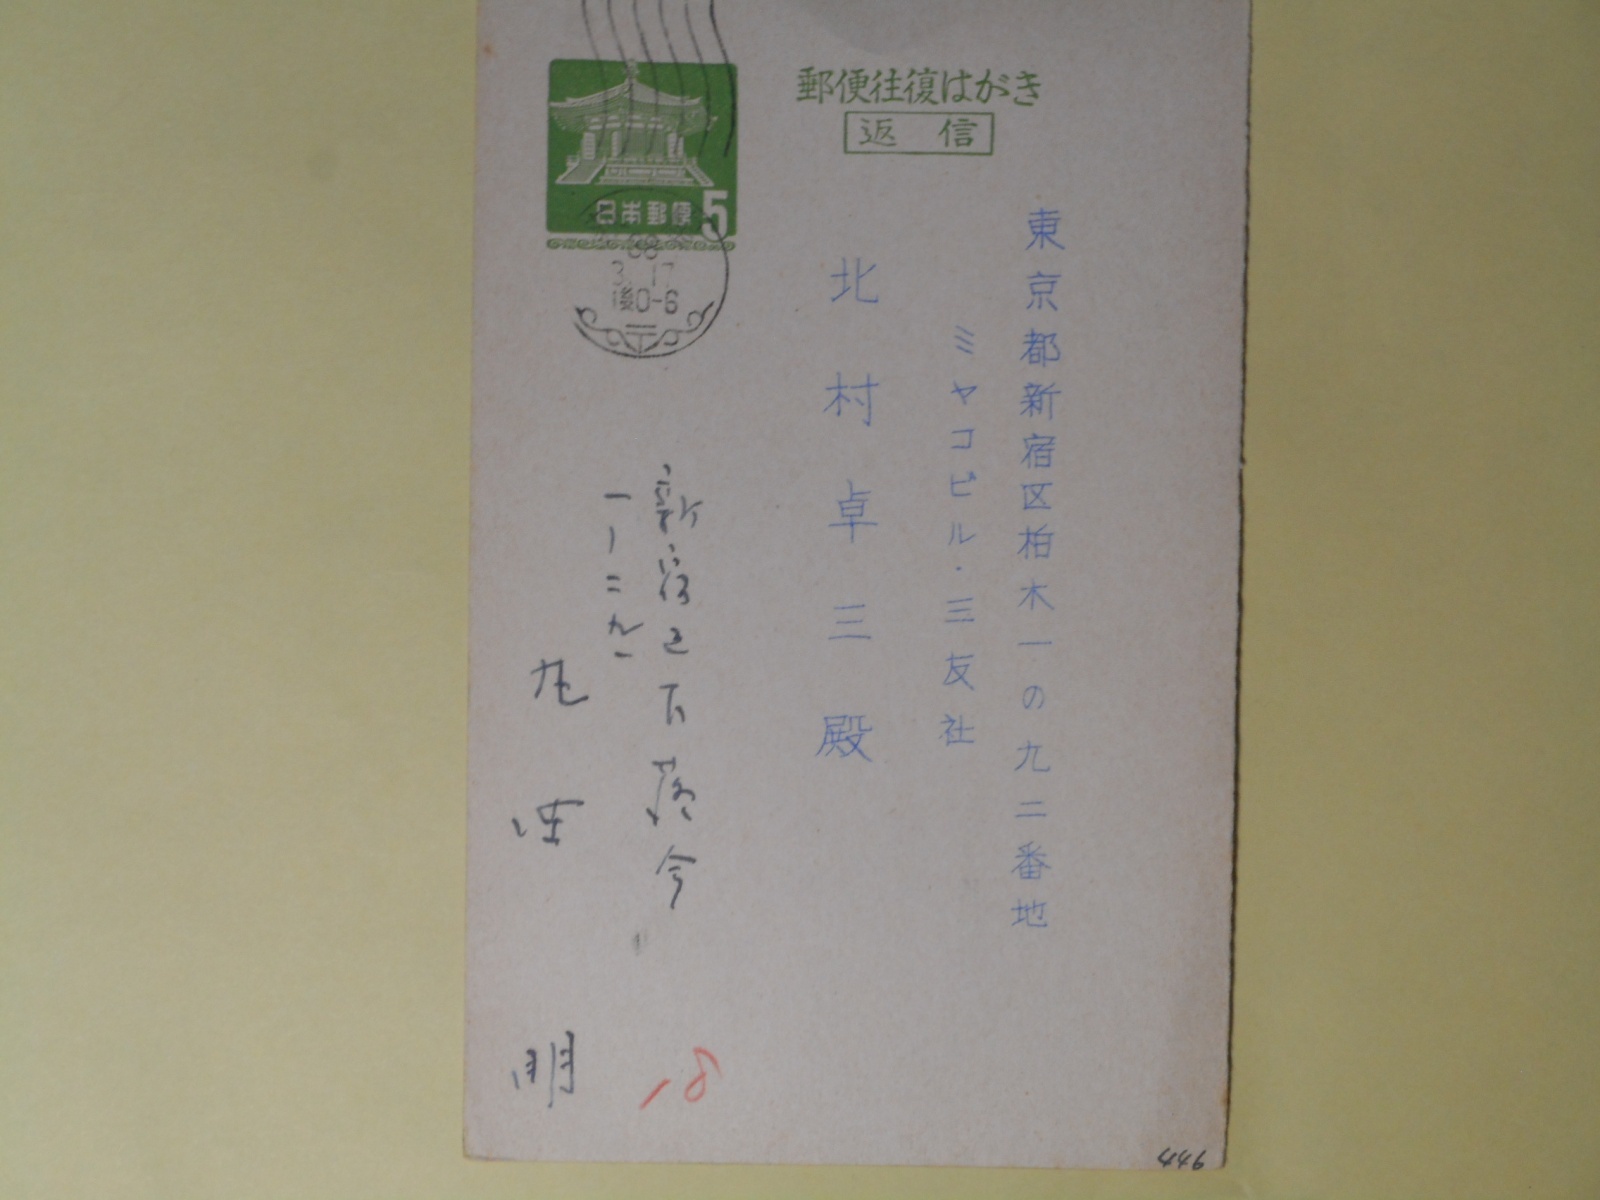 郵便往復はがき
返信
日本郵便 5
68
3.17
後0-6
東京都新宿区柏木一の九二番地
ミヤコビル・三友社
北村卓三殿
新宿区下落合
一ー二九一
明
18
446